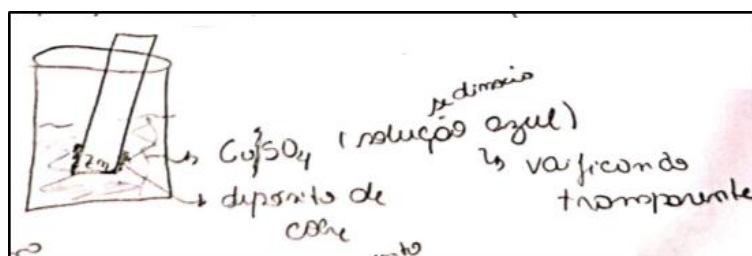 Zn
CuSO4 (solução azul)
vai ficando
transparente
depósito de
cobre